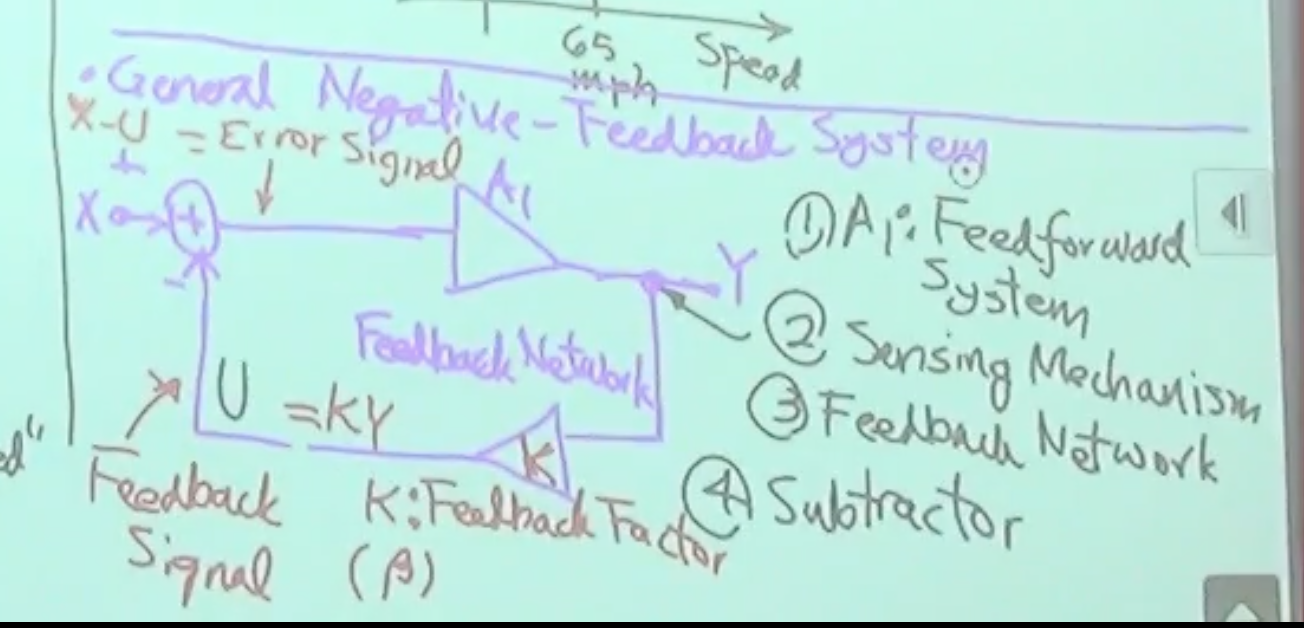 65
mph
Speed
• General Negative-Feedback System
X-U = Error Signal
+
X
+
-
A1
Y
Feedback Network
U = KY
K
Feedback
Signal
K: Feedback Factor
(β)
① A1: Feedforward
System
② Sensing Mechanism
③ Feedback Network
④ Subtractor
ed"